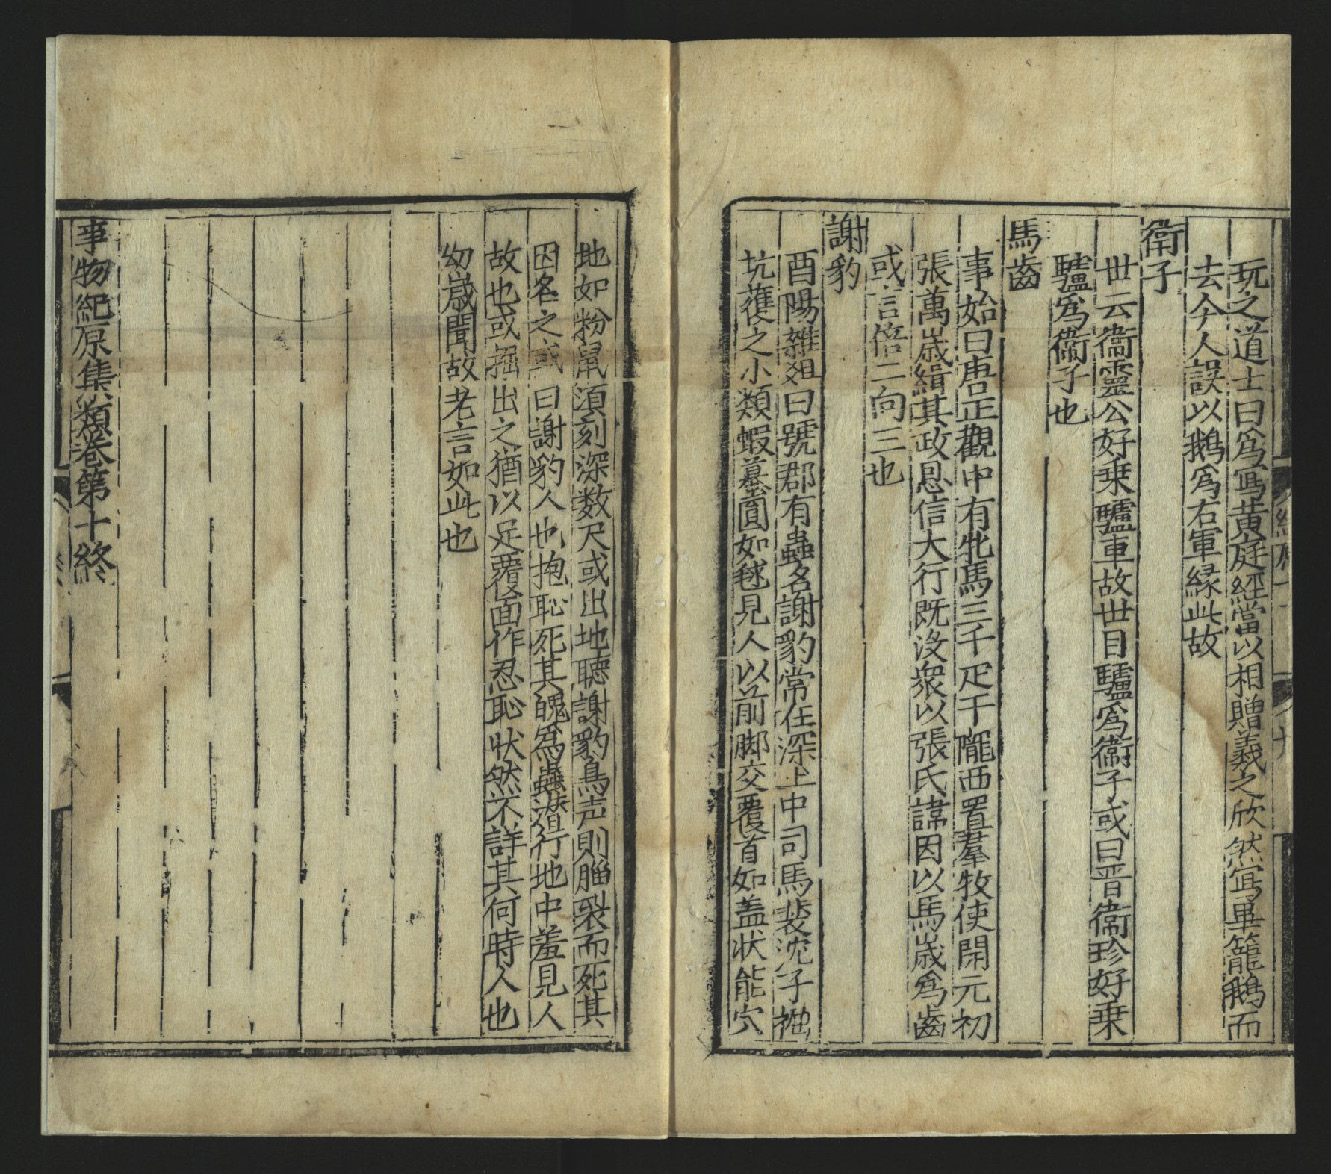 玩之道士曰爲寫黄庭經當以相贈羲之欣然寫畢籠鵝而
去今人誤以鵝爲右軍縁此故
衛子
世云衞靈公好乗驢車故世目驢爲衞子或曰晋衞玠好乗
驢爲衞子也
馬齒
事始曰唐正觀中有牝馬三千疋于隴西置羣牧使開元初
張萬嵗緝其政恩信大行既没衆以張氏諱因以馬嵗爲齒
或言倍二向三也
謝豹
酉陽雜俎曰號郡有蟲名謝豹常在深土中司馬裴沈子掘
坑獲之小類蝦蟇圓如毬見人以前脚交覆首如盖状能穴
地如粉鼠湏刻深数尺或出地聽謝豹鳥声則腦裂而死其
因名之或曰謝豹人也抱恥死其魄爲蟲潜行地中羞見人
故也或掘出之猶以足覆面作忍恥状然不詳其何時人也
幼嵗聞故老言如此也
事物紀原集類卷第十終